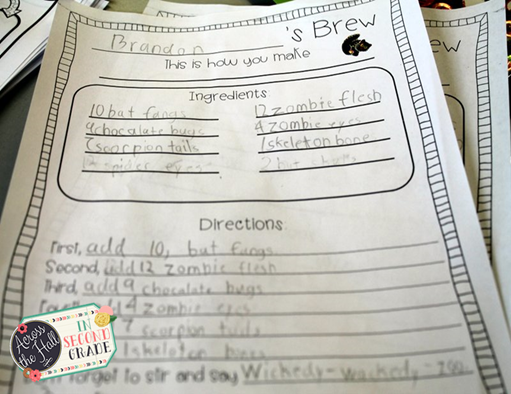 Brandon 's Brew
This is how you make
Ingredients
10 bat fangs
9 chocolate bugs
7 scorpion tails
spider eyes
12 zombie flesh
4 zombie eyes
1 skeleton bone
2 bat
Directions
First, add 10, bat fangs
Second, add 12 zombie flesh
Third, add 9 chocolate bugs
4 zombie eyes
7 scorpion tails
1 skeleton bones
forget to stir and say Wickedy-wackedy-
ew
Across the Hall
IN
SECOND
GRADE